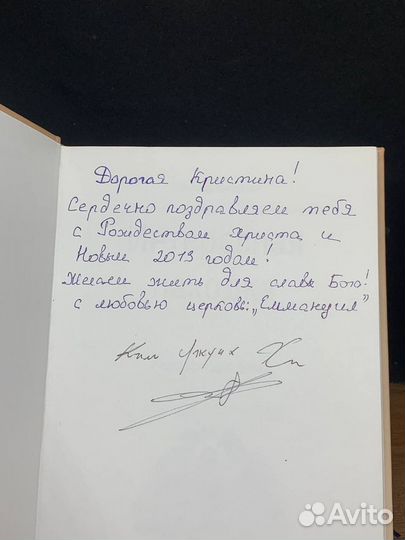 Дорогая Кристина!
Сердечно поздравляем тебя
с Рождеством Христа и
Новым 2013 годом!
Желаем жить для славы Бога!
с любовью церковь: „Еммануил"
Ким
Avito